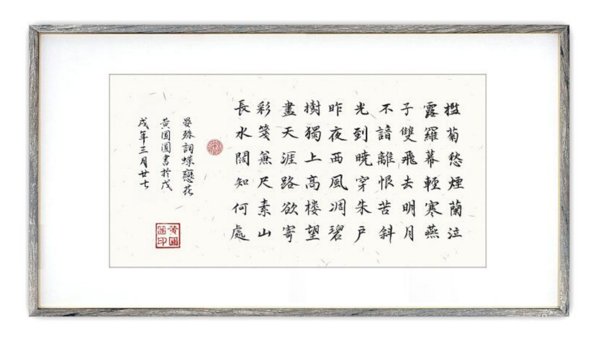 槛菊愁煙蘭泣
露羅幕輕寒燕
子雙飛去明月
不諳離恨苦斜
光到曉穿朱戶
昨夜西風凋碧
樹獨上高楼望
盡天涯路欲寄
彩箋兼尺素山
長水闊知何處
晏殊詞蝶戀花
黄圓圓書於戊
戌年三月廿七